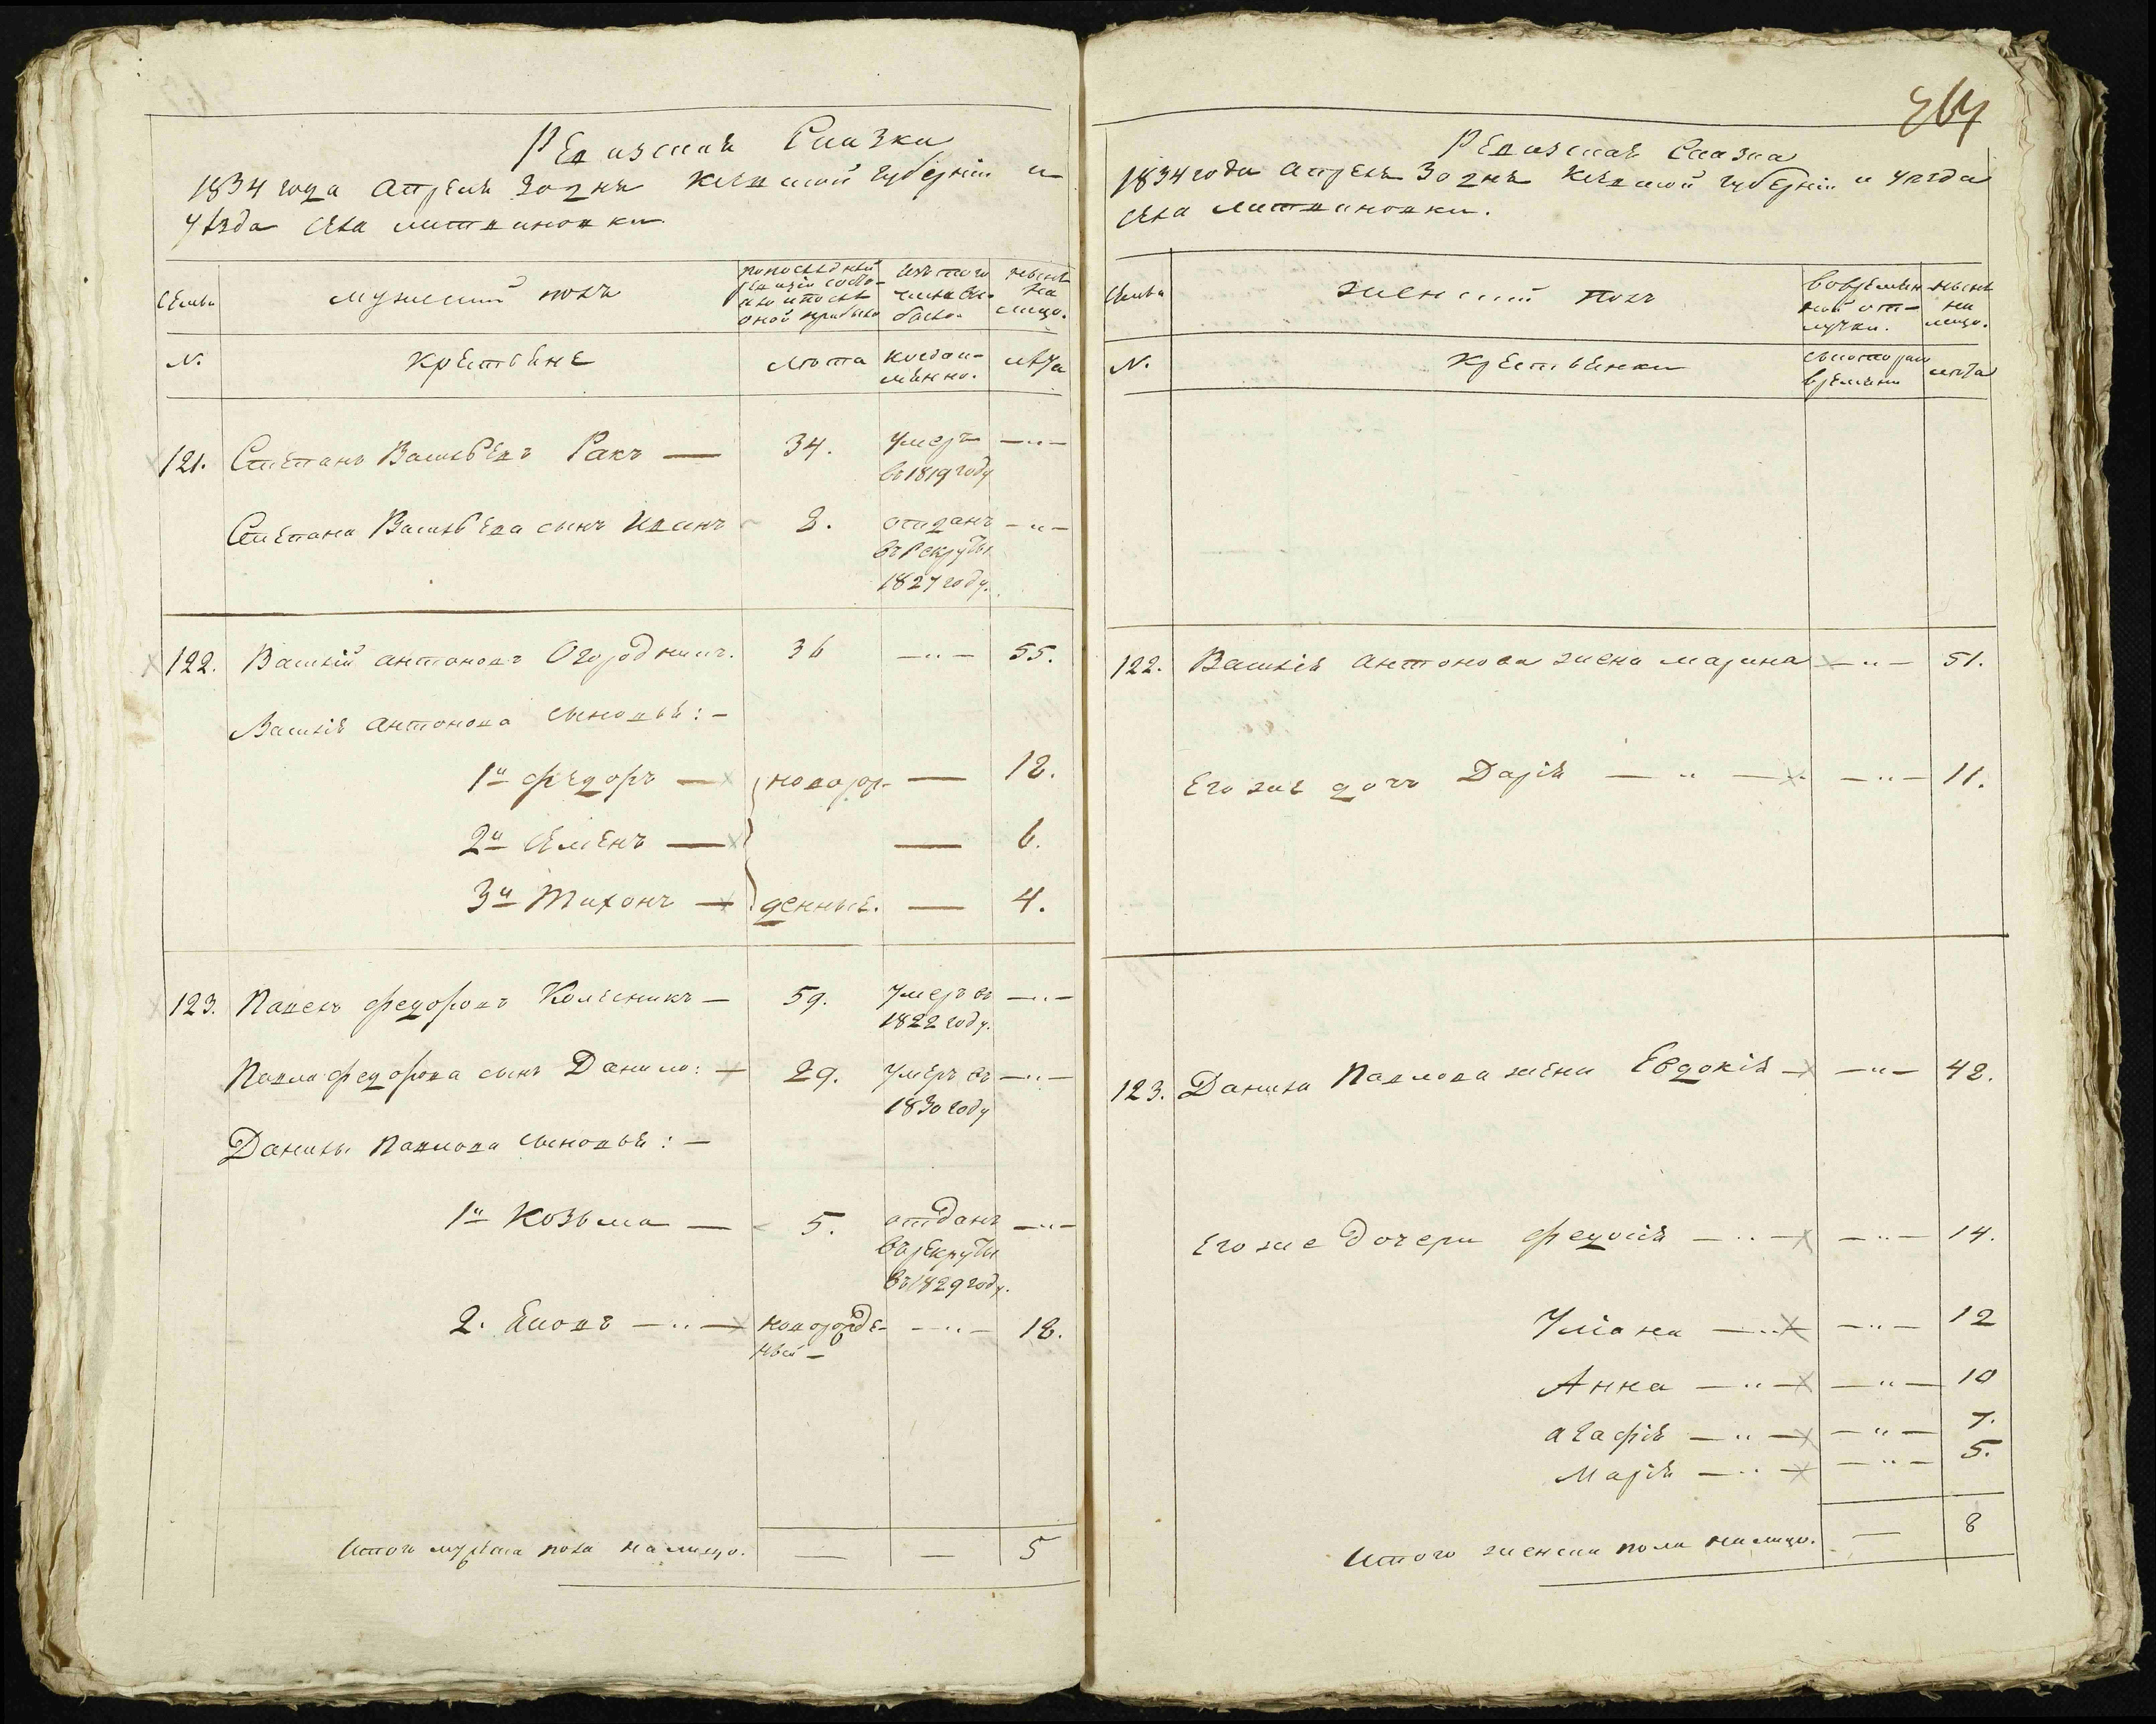 Ревизская Сказка
1834 года Апреля 30 дня Киевской губерніи и
уѣзда села Литвиновки
Семьи
мужеский полъ
по последней
ревизіи состо-
яло и после
оной прибыло
изъ того
числа вы-
было.
ныне
на
лицо.
№.
Крестьяне
Лѣта
когда и-
мянно.
лѣта
121. Степанъ Васильевъ Ракъ — 34. умеръ —"—
въ 1819 году
Степана Васильева сынъ Иванъ 8. отданъ —"—
въ Рекруты
1827 году.
122. Василій Антоновъ Огородникъ. 36 —"— 55.
Василія Антонова сыновья: —
1й Федоръ — новорож- — 12.
2й Семенъ — — 6.
3й Тихонъ — денные. — 4.
123. Павелъ Федоровъ Колесникъ — 59. умеръ въ —"—
1822 году.
Павла Федорова сынъ Данило: — 29. умеръ въ —"—
1830 году
Данилы Павлова сыновья: —
1й Козьма — 5. отданъ —"—
въ рекруты
въ 1829 году.
2. Яковъ —"— новорожде- —"— 18.
ный —
Итого мужеска пола на лицо. — — 5
364
Ревизская Сказка
1834 года Апреля 30 дня Киевской губерніи и уезда
села Литвиновки.
Семьи
женский полъ
во времян-
ной от-
лучки.
ныне
на
лицо.
№.
Крестьянки
съ котораго
времени
лѣта
122. Василія Антонова жена Марина —"— 51.
Его же дочь Дарія —"— —"— 11.
123. Данила Павлова жена Евдокія — —"— 42.
Его же дочери Федосія —"— —"— 14.
Уліана —"— —"— 12
Анна —"— —"— 10
Агафія —"— —"— 7.
Марія —"— —"— 5.
Итого женска пола налицо. — 8